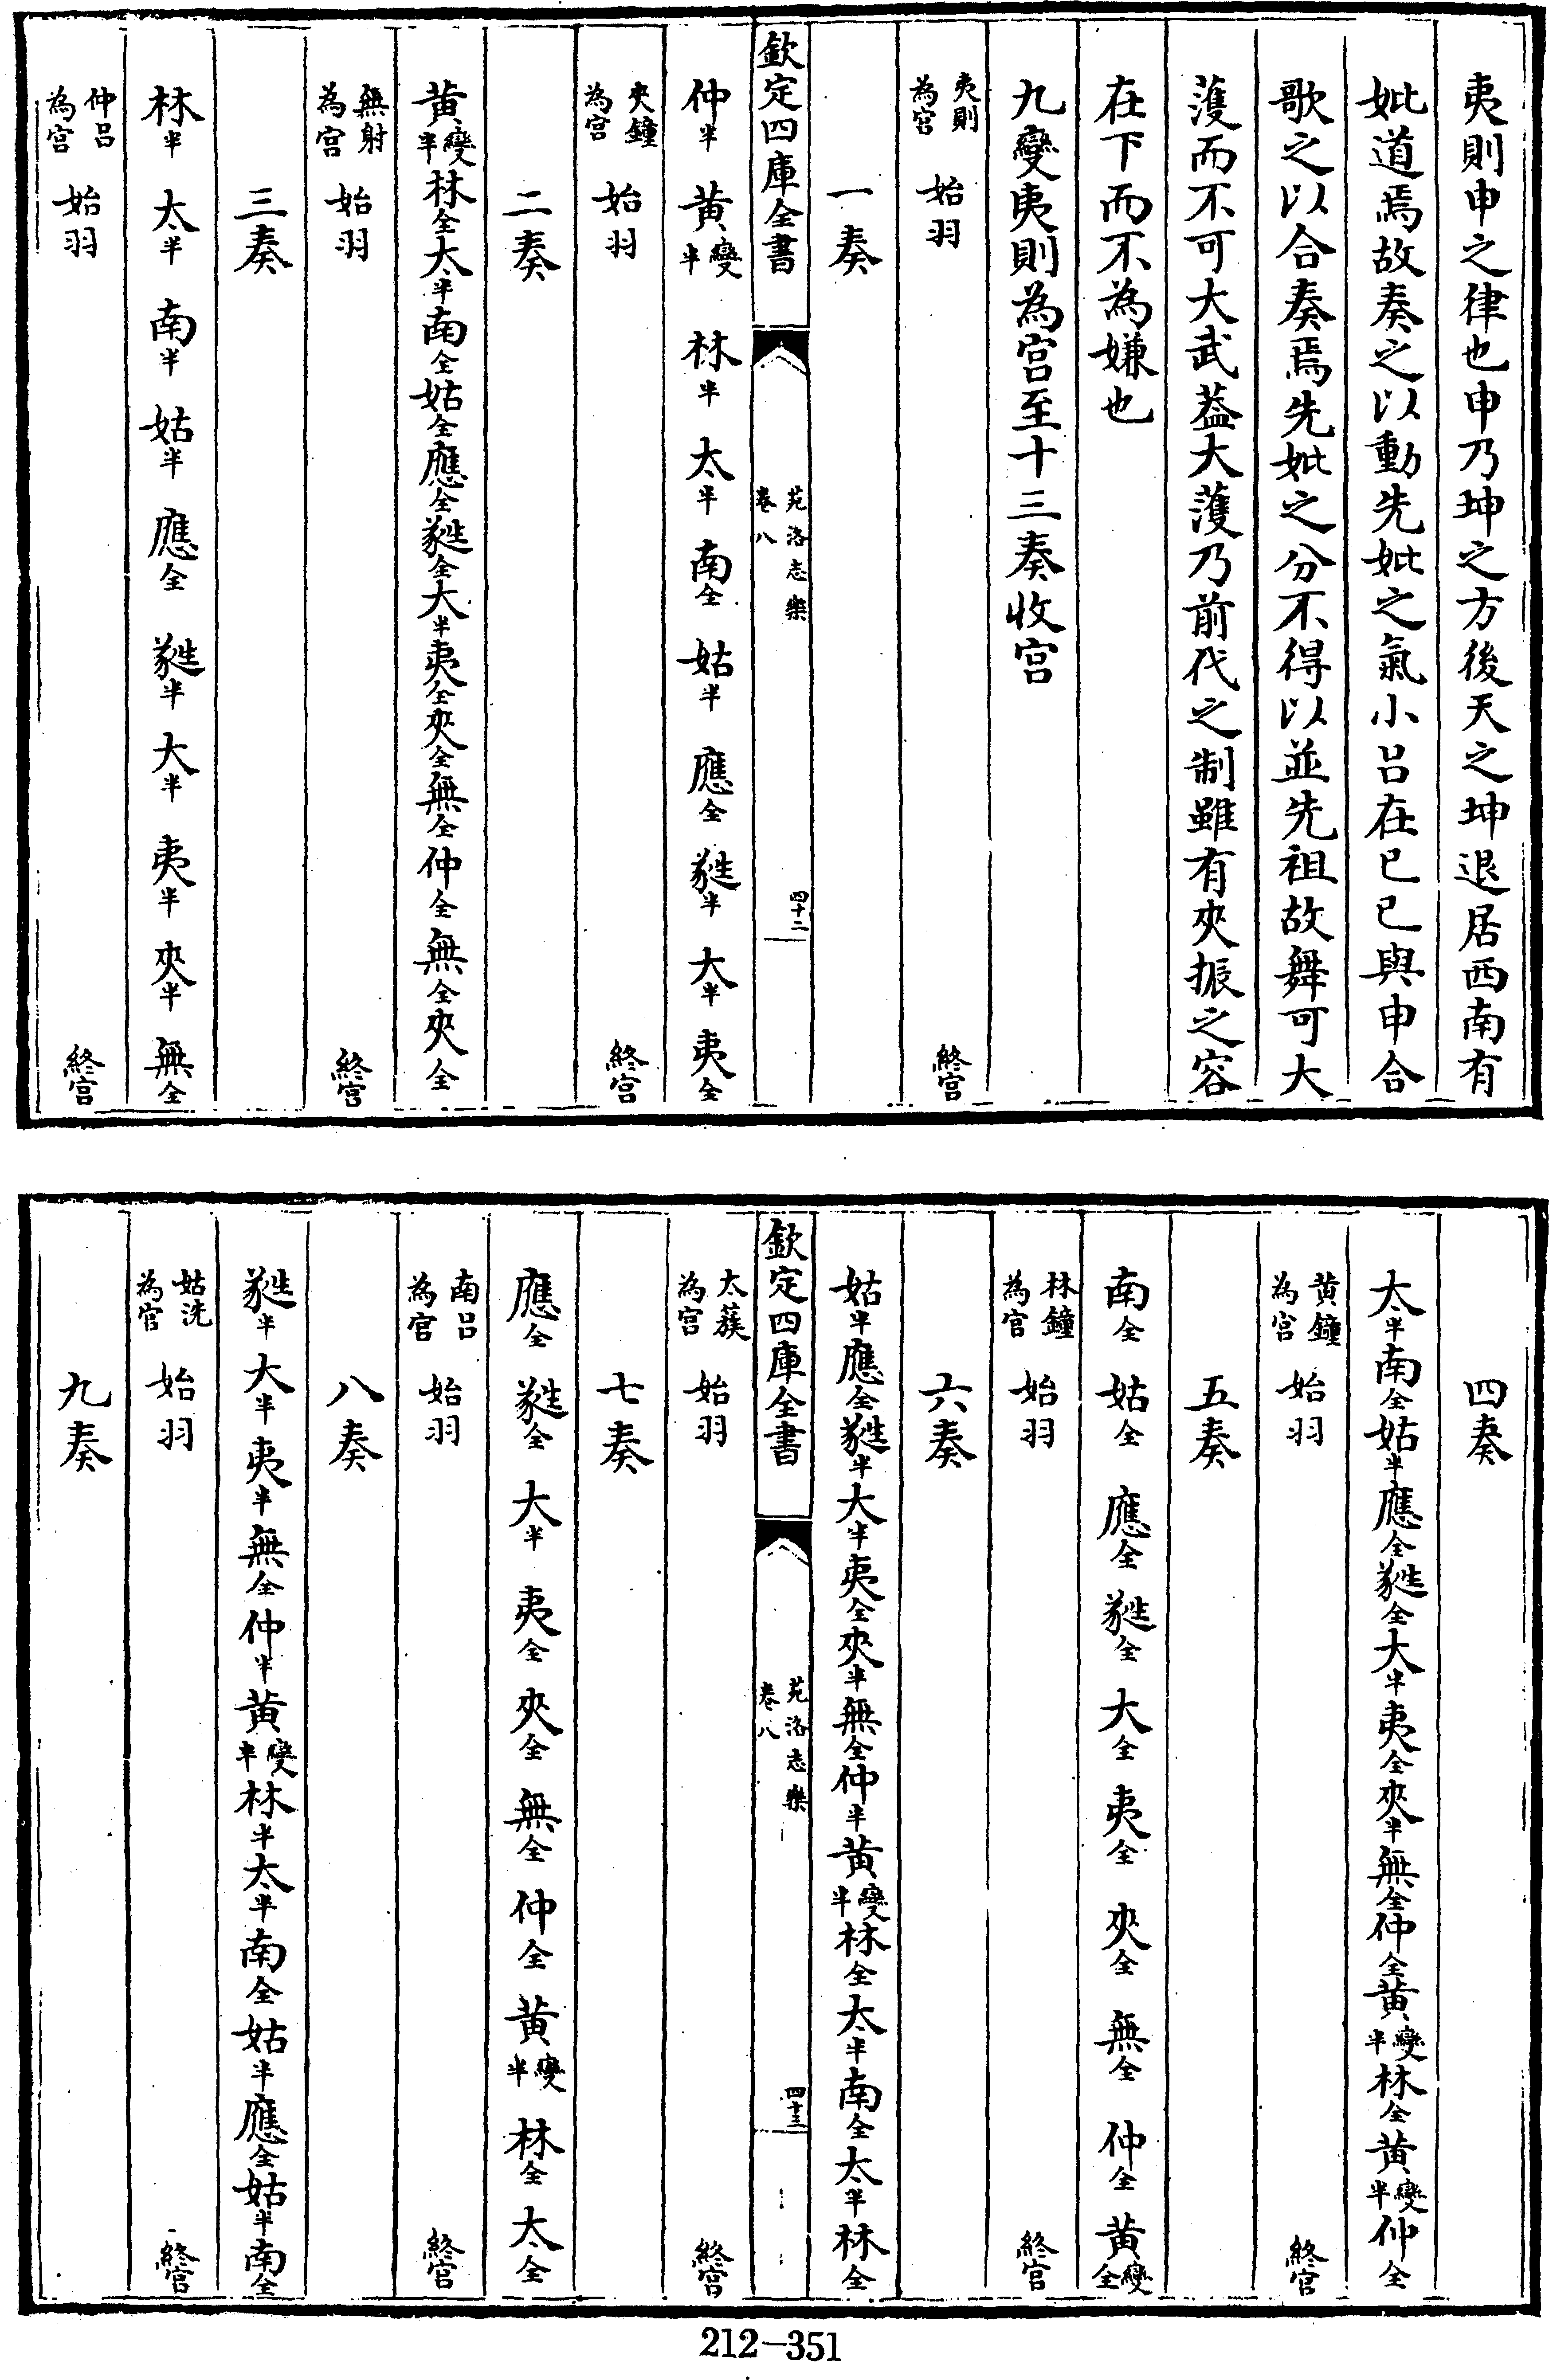 夷則申之律也申乃坤之方後天之坤退居西南有
妣道焉故奏之以動先妣之氣小呂在巳巳與申合
歌之以合奏焉先妣之分不得以並先祖故舞可大
濩而不可大武葢大濩乃前代之制雖有夾振之容
在下而不為嫌也
九變夷則為宫至十三奏收宫
夷則為宫 始羽 終宫
一奏
欽定四庫全書 苑洛志樂 卷八 四十二
仲半 黄變半 林半 太半 南全 姑半 應全 蕤半 大半 夷全
夾鐘為宫 始羽 終宫
二奏
黄變半林全太半南全姑全應全蕤全大半夷全夾全無全仲全無全夾全
無射為宫 始羽 終宫
三奏
林半 太半 南半 姑半 應全 蕤半 大半 夷半 夾半 無全
仲呂為宫 始羽 終宫
四奏
太半南全姑半應全蕤全大半夷全夾半無全仲全黄變半林全黄變半仲全
黄鐘為宫 始羽 終宫
五奏
南全 姑全 應全 蕤全 大全 夷全 夾全 無全 仲全 黄變全
林鐘為宫 始羽 終宫
六奏
姑半應全蕤半大半夷全夾半無全仲半黄變半林全太半南全太半林全
欽定四庫全書 苑洛志樂 卷八 四十三
太蔟為宫 始羽 終宫
七奏
應全 蕤全 大半 夷全 夾全 無全 仲全 黄變半 林全 太全
南呂為宫 始羽 終宫
八奏
蕤半大半夷半無全仲半黄變半林半太半南全姑半應全姑半南全
姑洗為宫 始羽 終宫
九奏
212-351